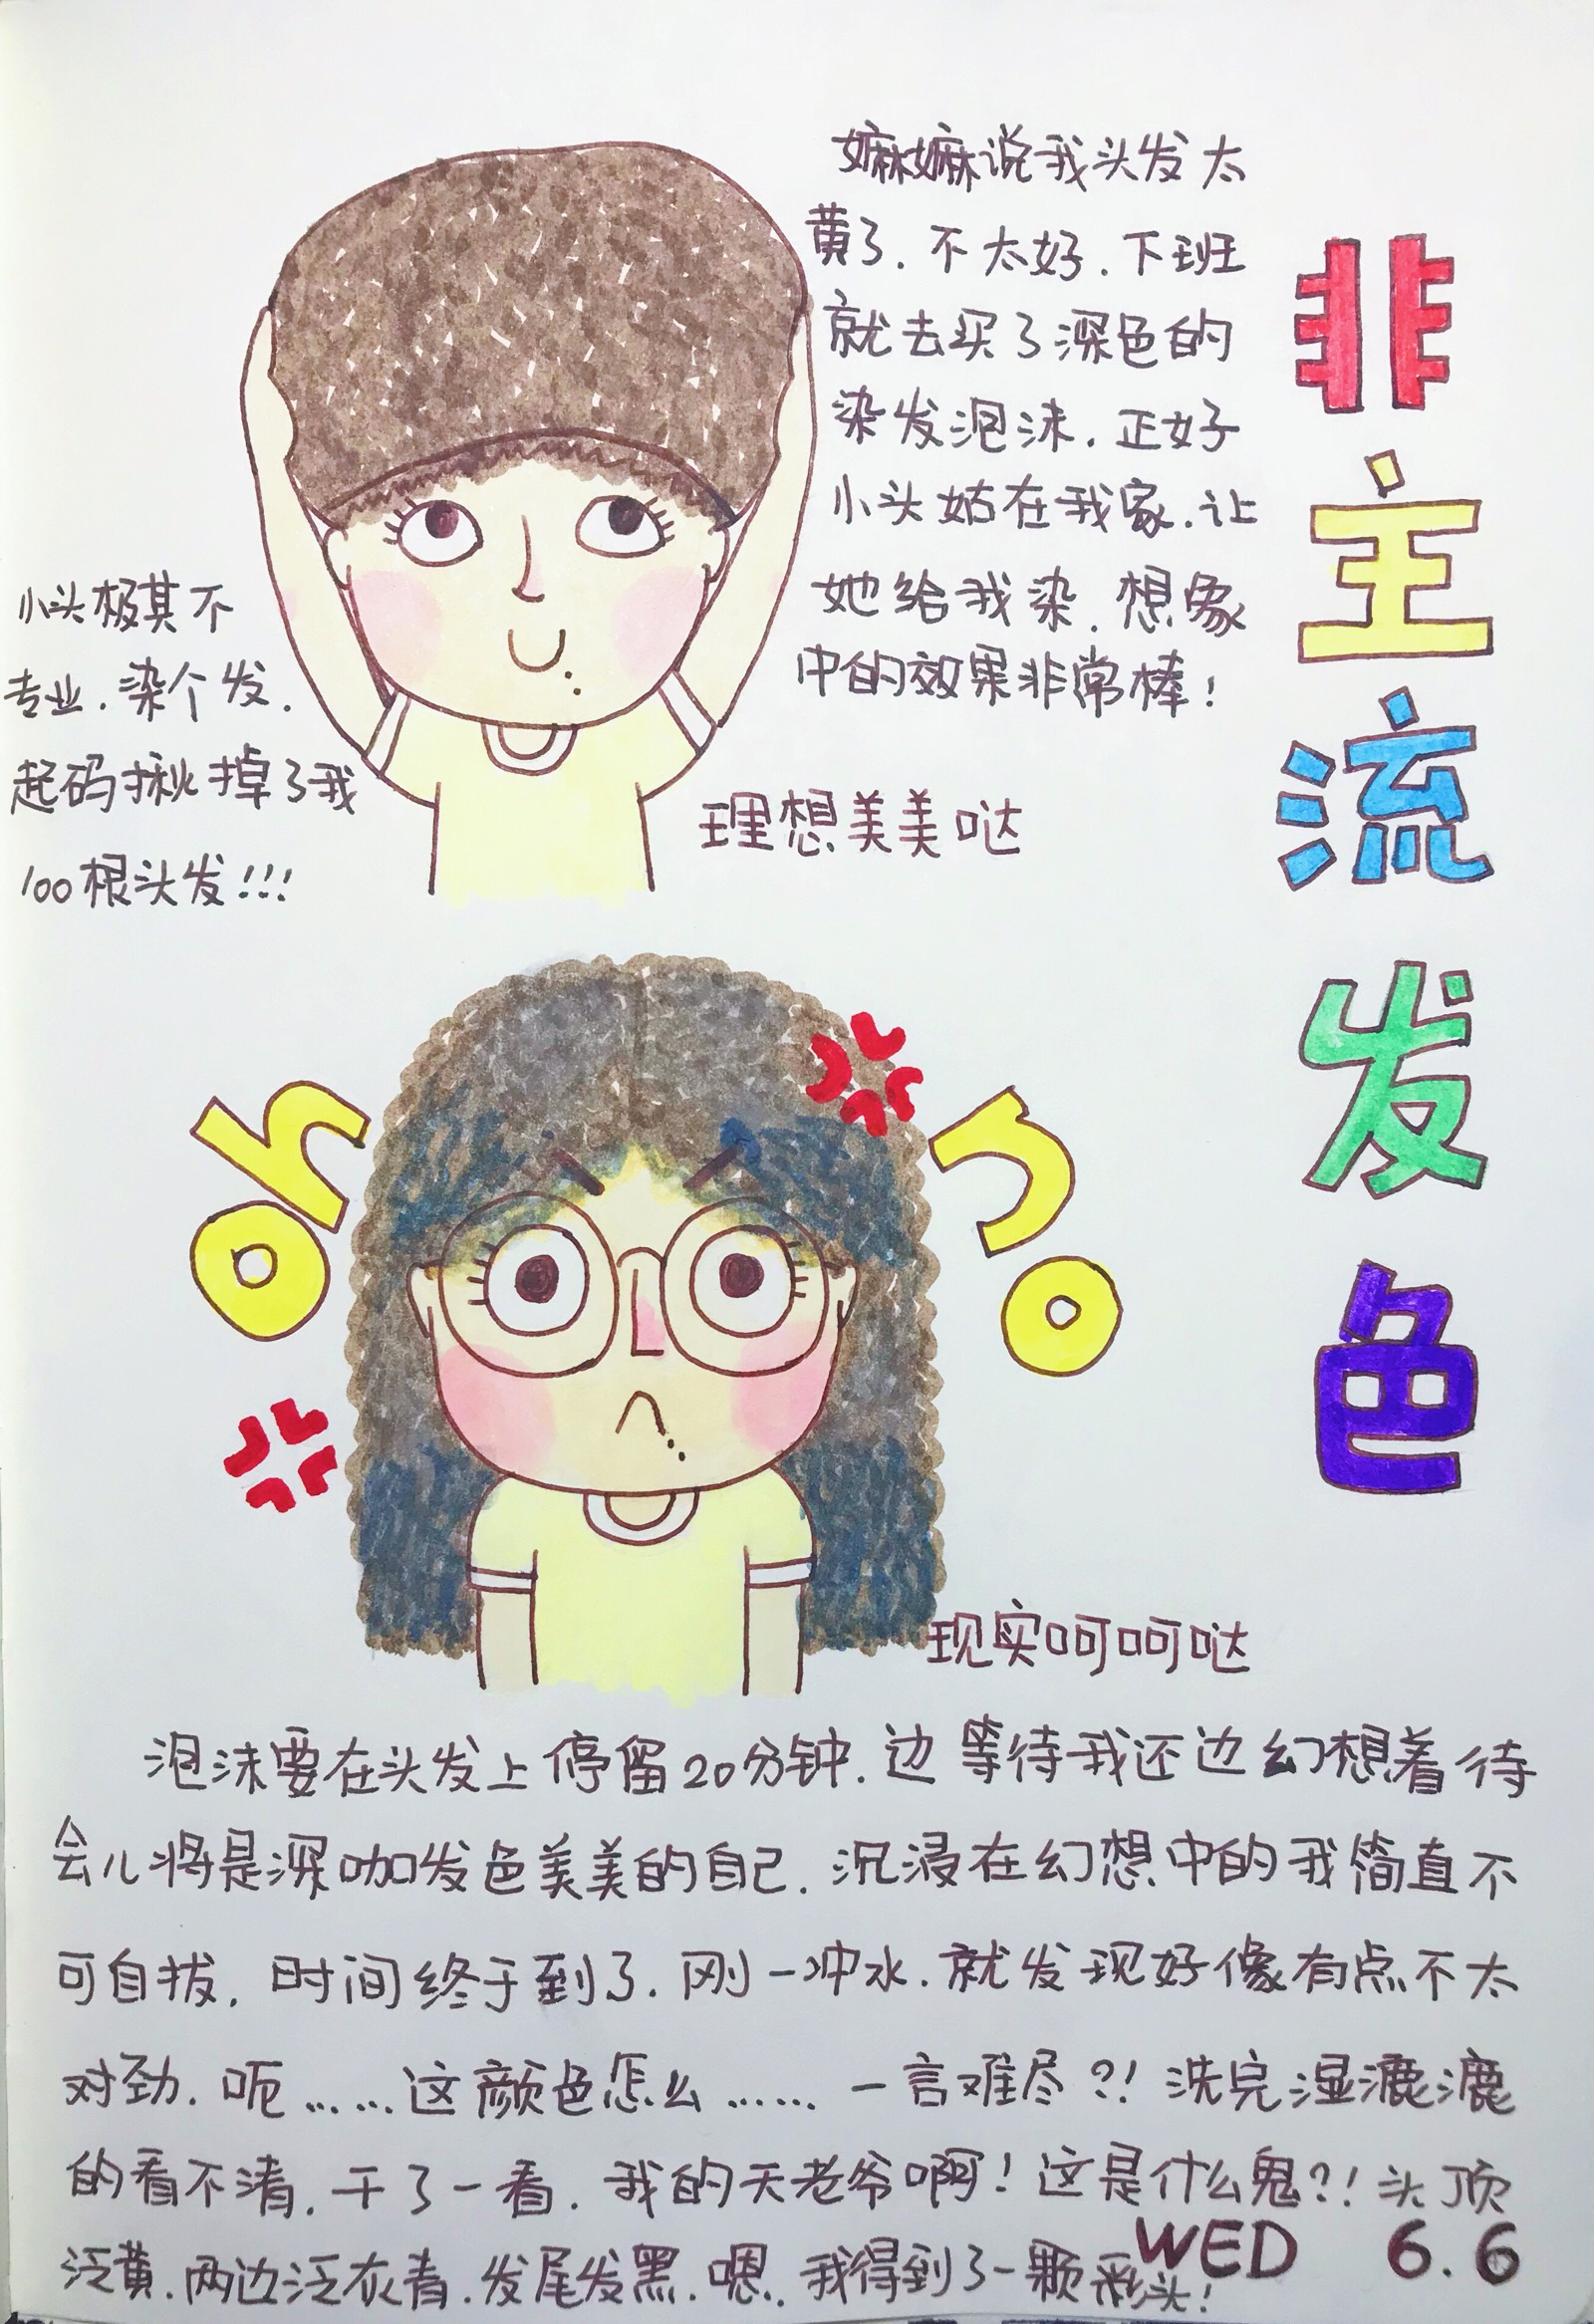 非主流发色
嫲嫲说我头发太
黄了.不太好.下班
就去买了深色的
染发泡沫.正好
小头姑在我家.让
她给我染.想象
中的效果非常棒!
小头极其不
专业.染个发.
起码揪掉了我
100根头发!!!
理想美美哒
oh
no
现实呵呵哒
泡沫要在头发上停留20分钟.边等待我还边幻想着待
会儿将是深咖发色美美的自己.沉浸在幻想中的我简直不
可自拔.时间终于到了.刚一冲水.就发现好像有点不太
对劲.呃……这颜色怎么……一言难尽?!洗完湿漉漉
的看不清.干了一看.我的天老爷啊!这是什么鬼?!头顶
泛黄.两边泛灰青.发尾发黑.嗯.我得到了一颗彩头!
WED 6.6